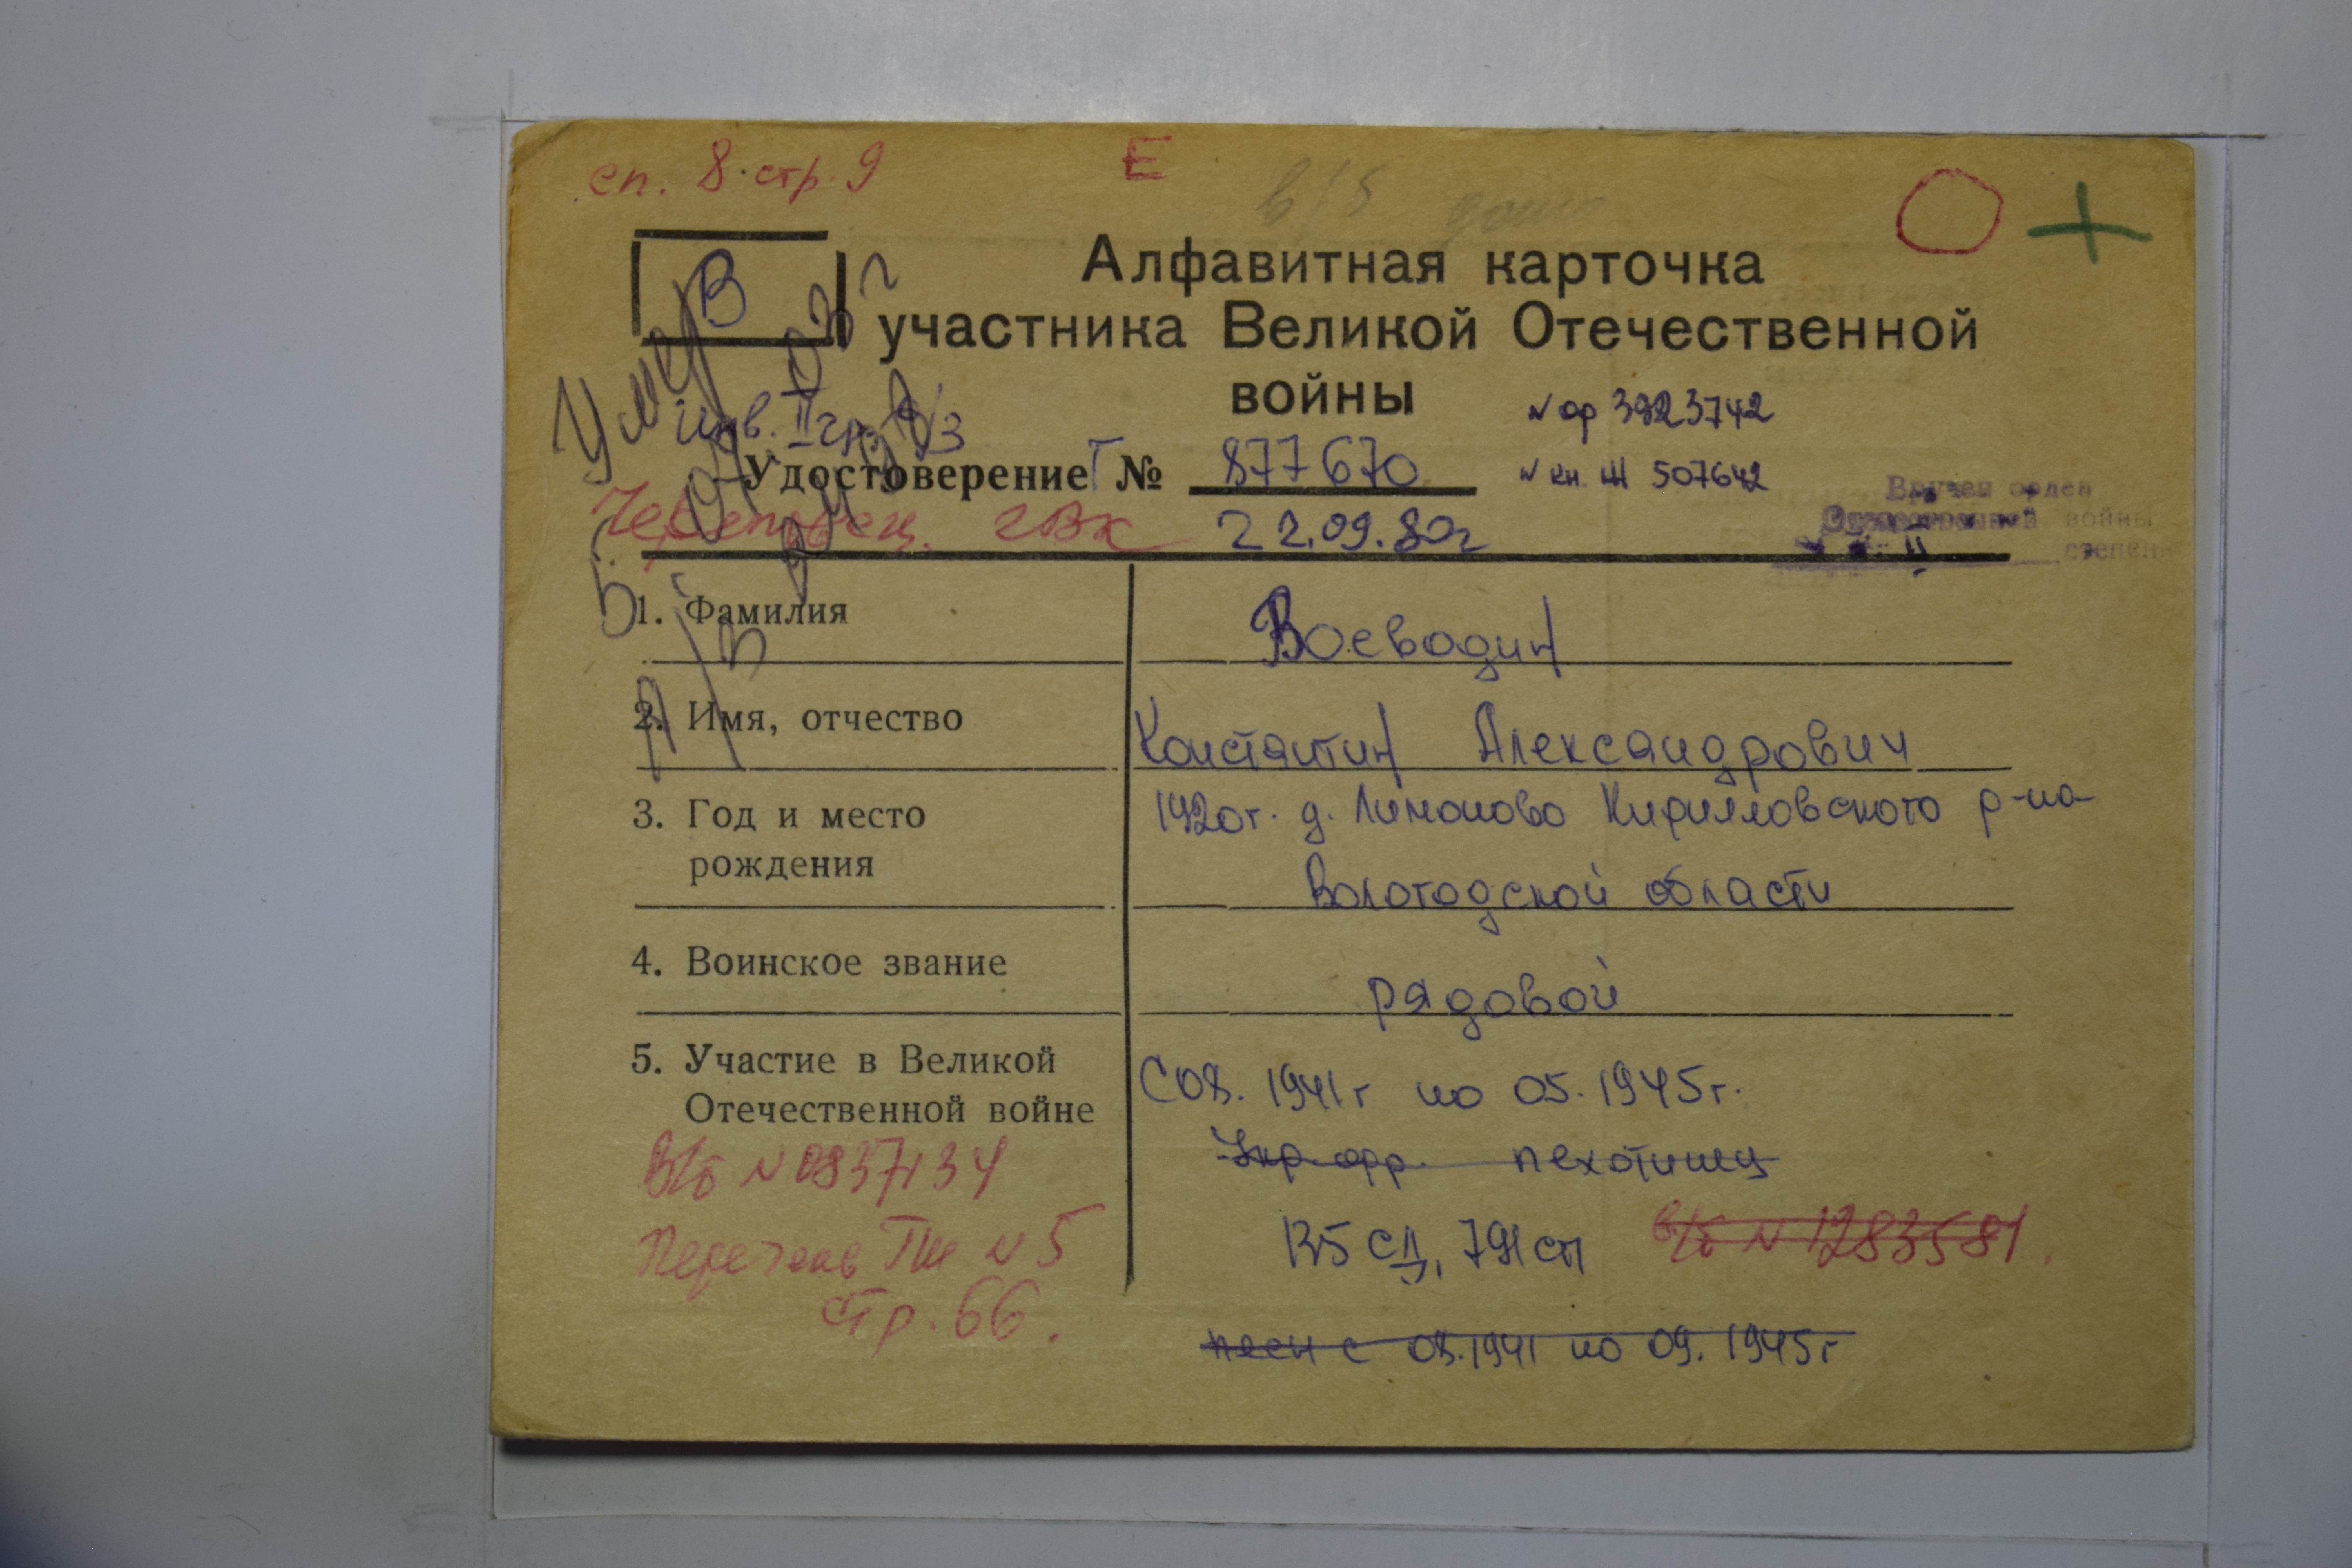 сп. 8. стр. 9
Е
В
Алфавитная карточка
участника Великой Отечественной
войны
N ор 3923742
инв. II гр.
Удостоверение Т № 877670
N кн. Ж 507642
Вручен орден
Отечественной войны
II степени
Череповец. ГВК 22.09.80г
Умер
1. Фамилия Воеводин
2. Имя, отчество Константин Александрович
3. Год и место 1920г. д. Лимоново Кирилловского р-на
рождения Вологодской области
4. Воинское звание рядовой
5. Участие в Великой С 08. 1941г по 05. 1945г.
Отечественной войне
Укр. фр. пехотинец
В/б N 0837134
135 СД, 791 сп
в/б N 1283581.
Перечень ГШ N 5
стр. 66.
с 08.1941 по 09. 1945г